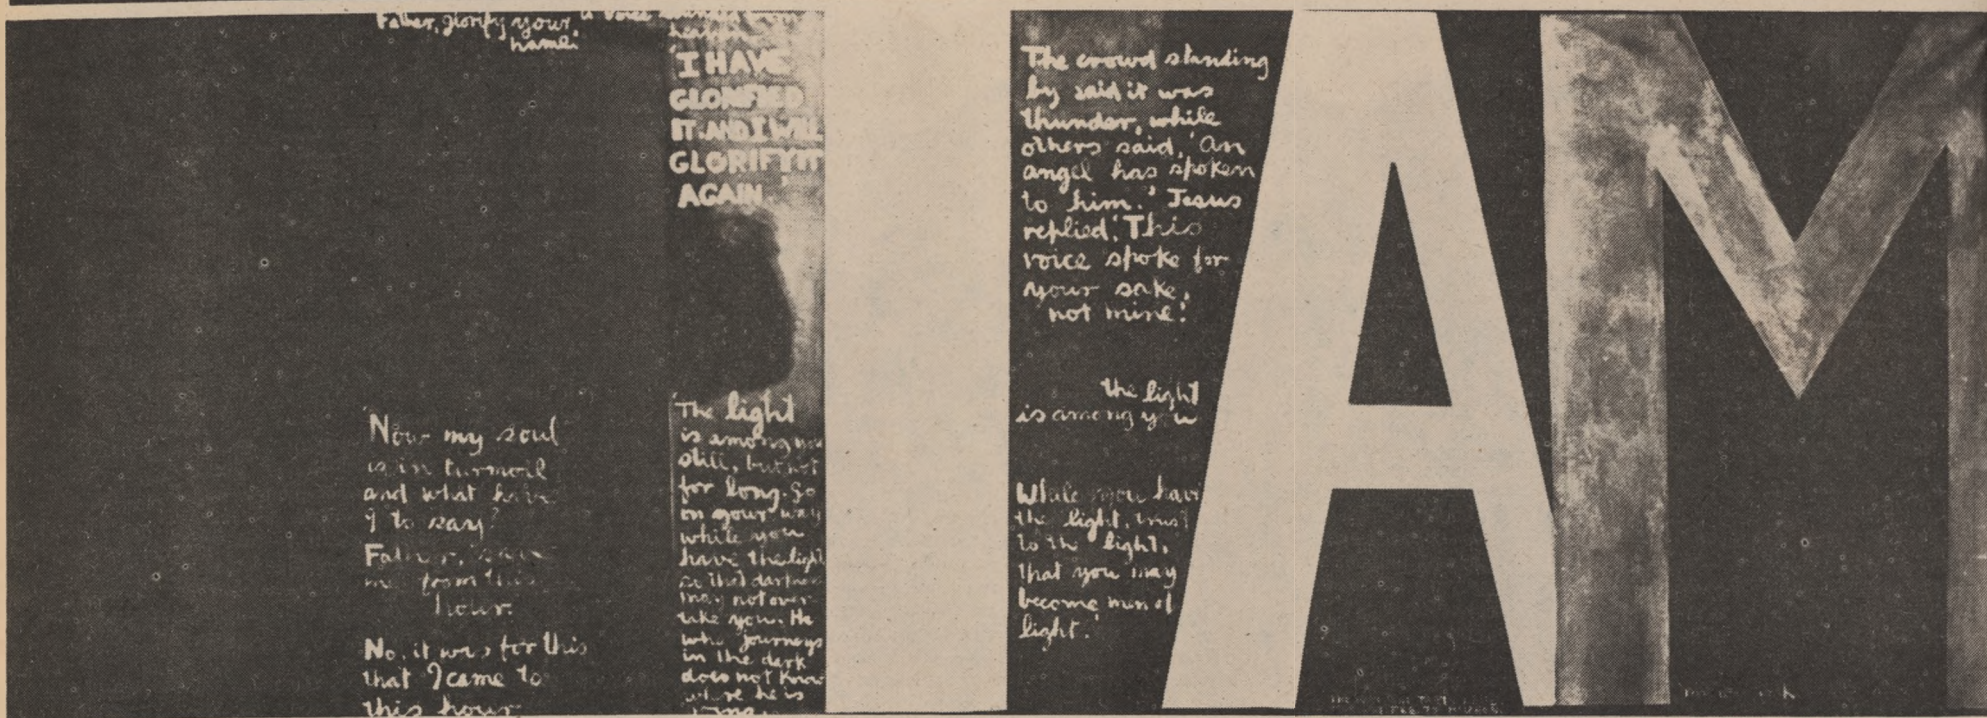 Father, glorify your
name.'
a voice
'I HAVE
GLORIFIED
IT AND I WILL
GLORIFY IT
AGAIN
'Now my soul
is in turmoil
and what have
I to say?
Father, save
me from this
hour.
No, it was for this
that I came to
this hour
'The light
is among you
still, but not
for long. Go
on your way
while you
have the light
so that darkness
may not over
take you. He
who journeys
in the dark
does not know
where he is
I
The crowd standing
by said it was
thunder, while
others said, 'An
angel has spoken
to him.' Jesus
replied, 'This
voice spoke for
your sake,
not mine.'
the light
is among you
While you have
the light, trust
to the light,
that you may
become men of
light.'
AM